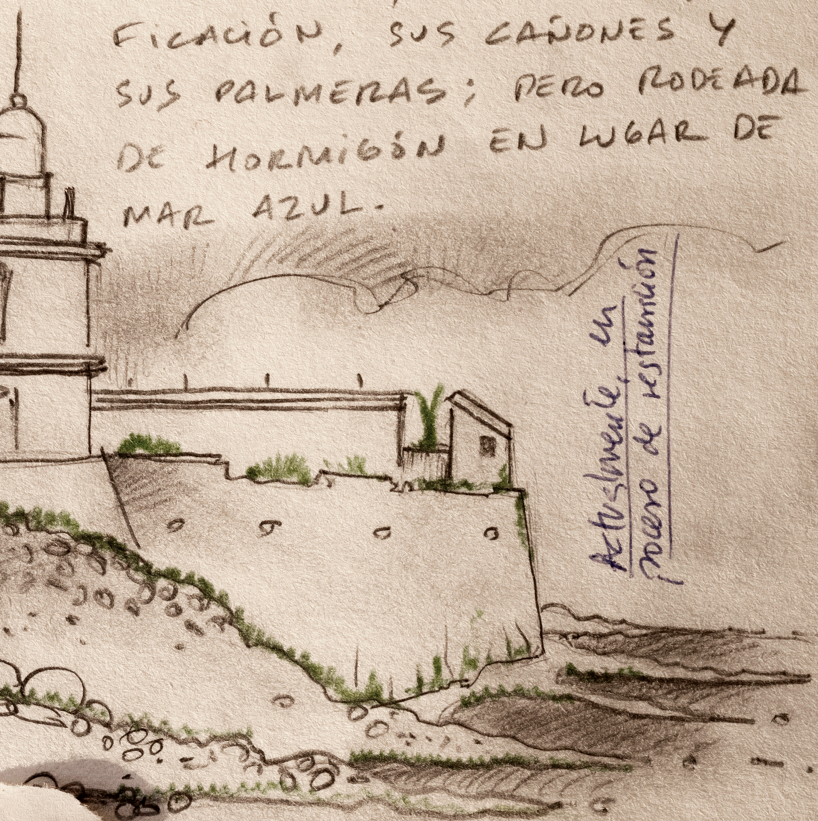 FICACIÓN, SUS CAÑONES Y
SUS PALMERAS; PERO RODEADA
DE HORMIGÓN EN LUGAR DE
MAR AZUL.
Actualmente, en
proceso de restauración